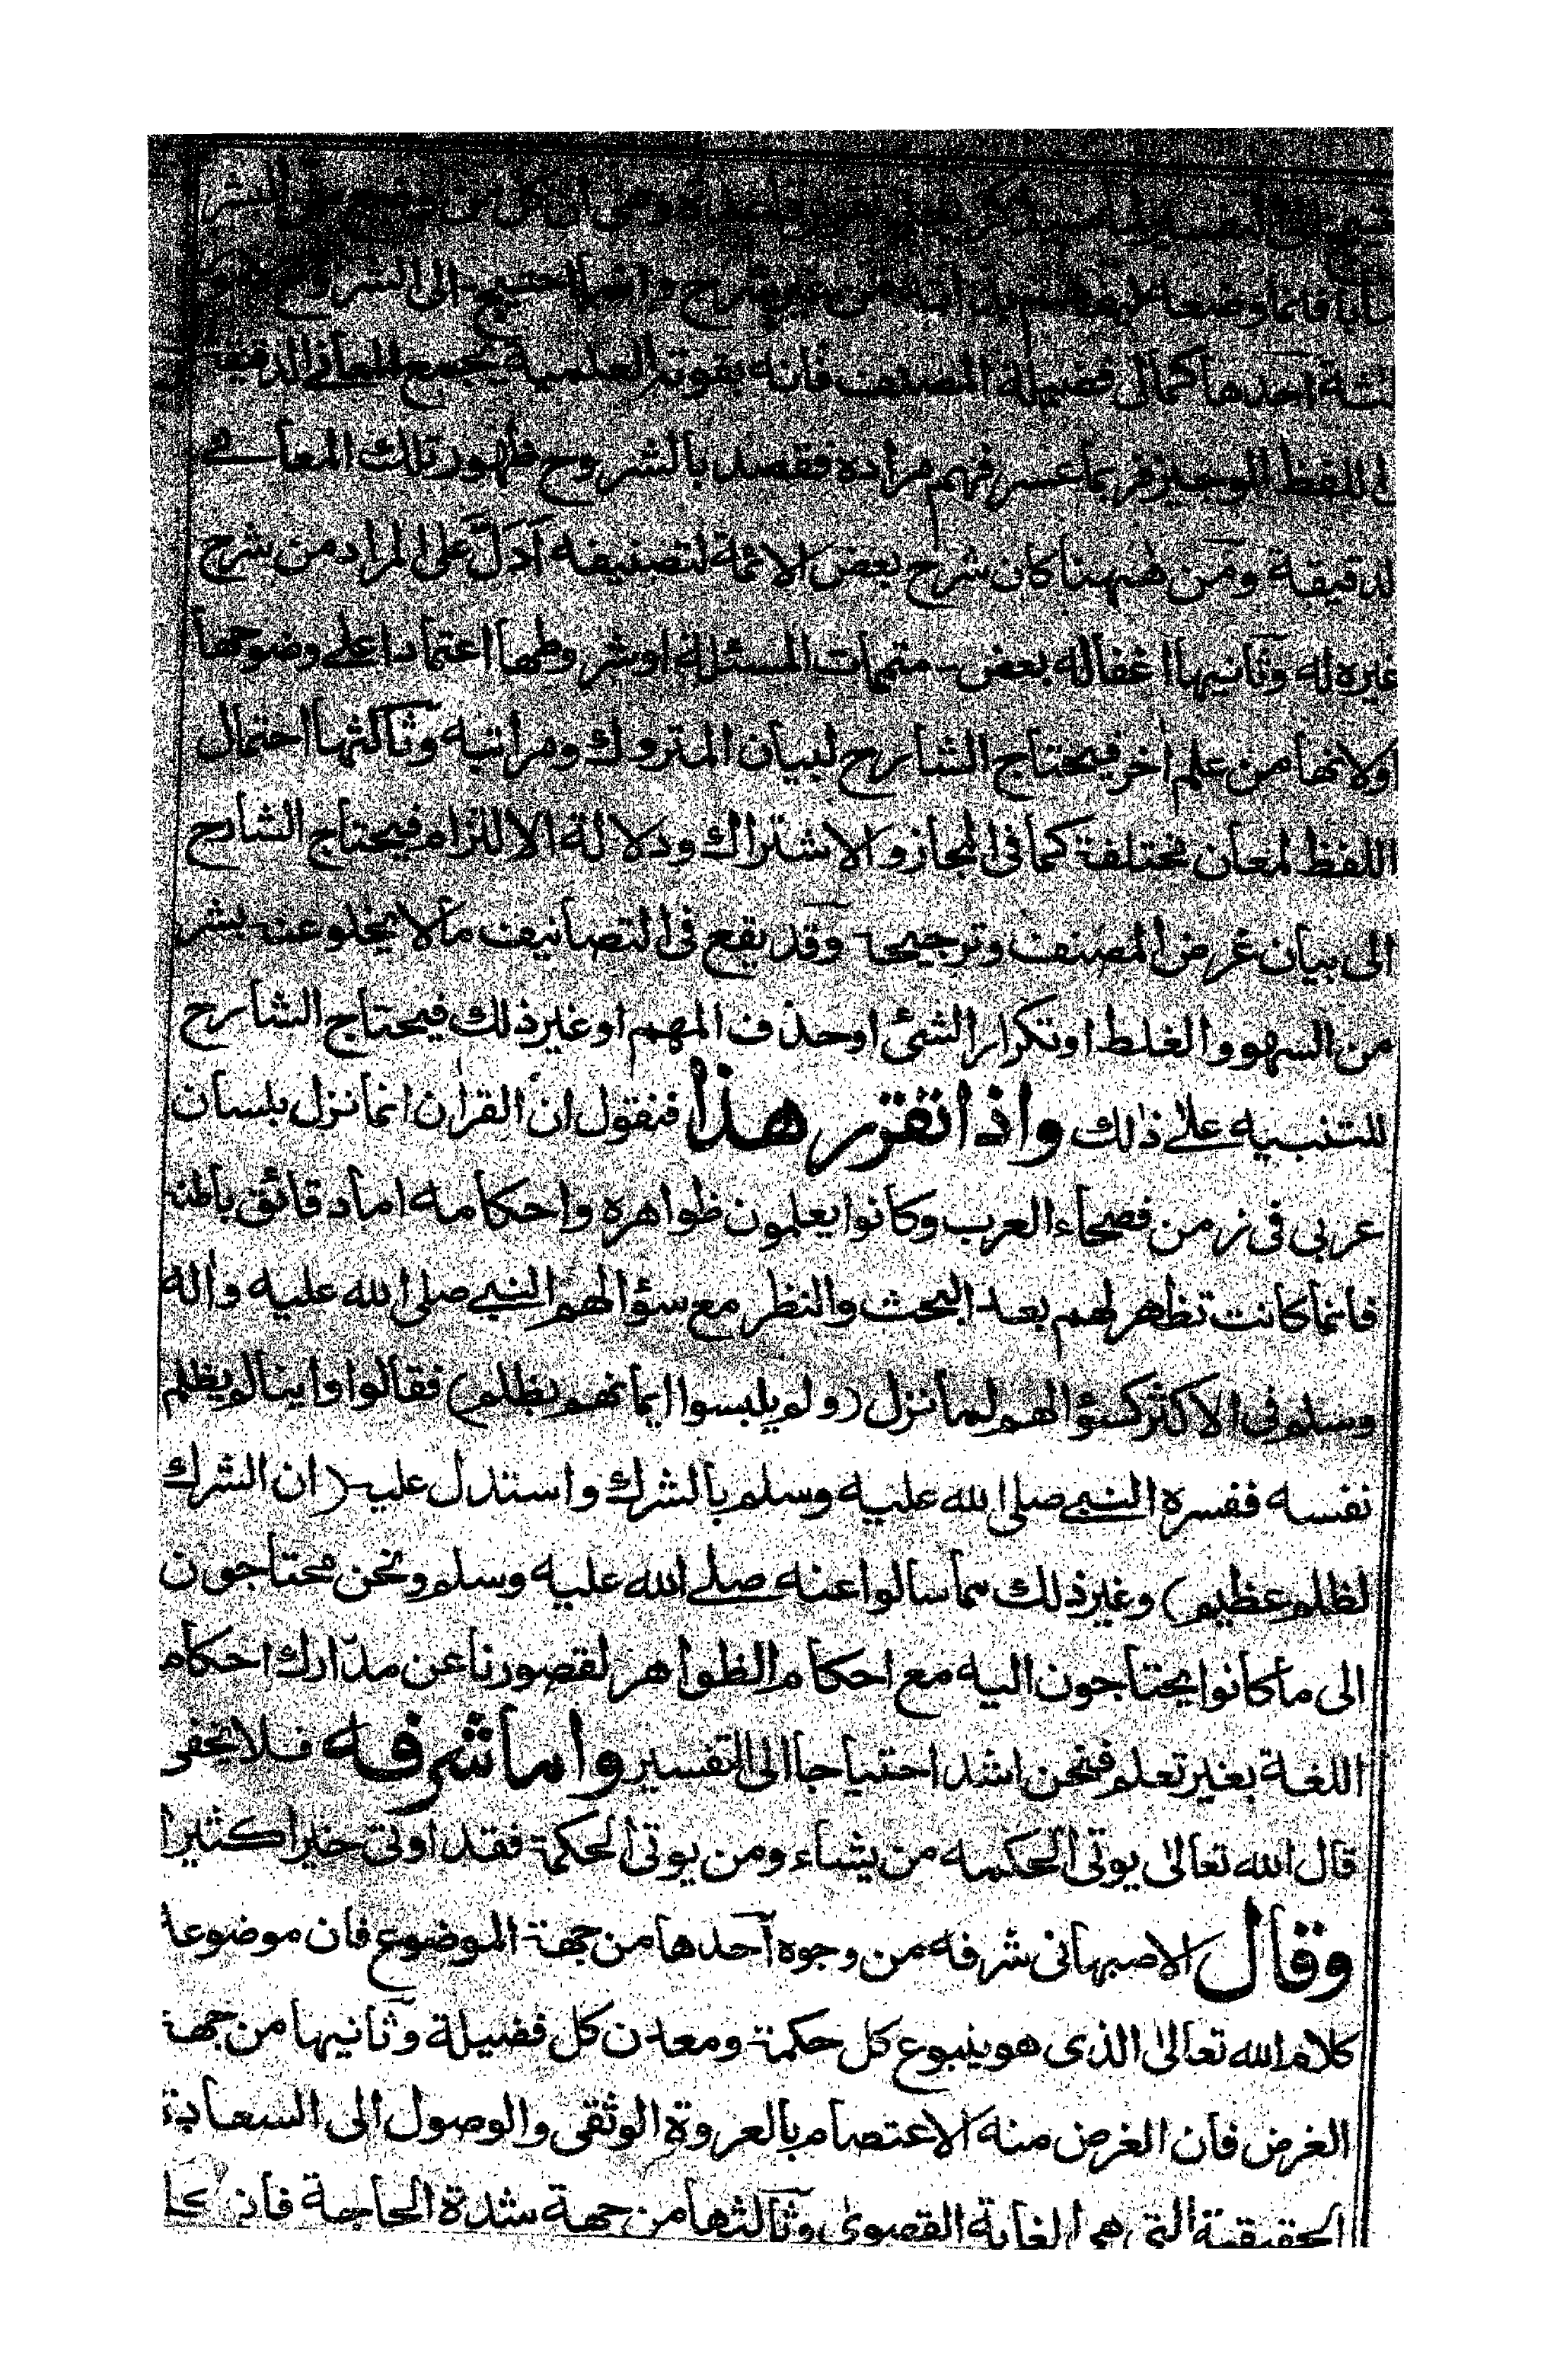 التفسير فلما سنذكره بعد تقرير قاعدة وهى ان كل من وضع من البشر
كتابا فانما وضعه ليفهم بذاته من غير شرح وانما احتيج الى الشروح لامور
ثلثة احدها كمال فضيلة المصنف فانه بقوته العلمية يجمع المعانى الدقيقة
فى اللفظ الوجيز فربما عسر فهم مراده فقصد بالشروح ظهور تلك المعانى
الدقيقة ومن ههنا كان شرح بعض الائمة لتصنيفه ادل على المراد من شرح
غيره له وثانيها اغفاله بعض متممات المسئلة او شروطها اعتمادا على وضوحها
اولانها من علم اخر فيحتاج الشارح لبيان المتروك ومراتبه وثالثها احتمال
اللفظ لمعان مختلفة كما فى المجاز والاشتراك ودلالة الالتزام فيحتاج الشارح
الى بيان غرض المصنف وترجيحه وقد يقع فى التصانيف مالا يخلو عنه بشر
من السهو والغلط او تكرار الشئ او حذف المهم او غير ذلك فيحتاج الشارح
للتنبيه على ذلك واذا تقرر هذا فنقول ان القران انما نزل بلسان
عربى فى زمن فصحاء العرب وكانوا يعلمون ظواهره واحكامه اما دقائق باطنه
فانما كانت تظهر لهم بعد البحث والنظر مع سؤالهم النبى صلى الله عليه واله
وسلم فى الاكثر كسؤالهم لما نزل (ولم يلبسوا ايمانهم بظلم) فقالوا واينا لم يظلم
نفسه ففسره النبى صلى الله عليه وسلم بالشرك واستدل عليه (ان الشرك
لظلم عظيم) وغير ذلك مما سالوا عنه صلى الله عليه وسلم ونحن محتاجون
الى ما كانوا يحتاجون اليه مع احكام الظواهر لقصورنا عن مدارك احكام
اللغة بغير تعلم فنحن اشد احتياجا الى التفسير واما شرفه فلا تخفى
قال الله تعالى يوتى الحكمه من يشاء ومن يوتى الحكمة فقد اوتى خيرا كثيرا
وقال الاصبهانى شرفه من وجوه احدها من جهة الموضوع فان موضوعه
كلام الله تعالى الذى هو ينبوع كل حكمة ومعدن كل فضيلة وثانيها من جهة
الغرض فان الغرض منه الاعتصام بالعروة الوثقى والوصول الى السعادة
الحقيقية التى هى الغاية القصوى وثالثها من جهة شدة الحاجة فان كل